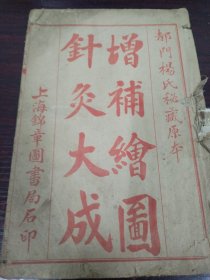 都門楊氏秘藏原本
增補繪圖
針灸大成
上海錦章圖書局石印